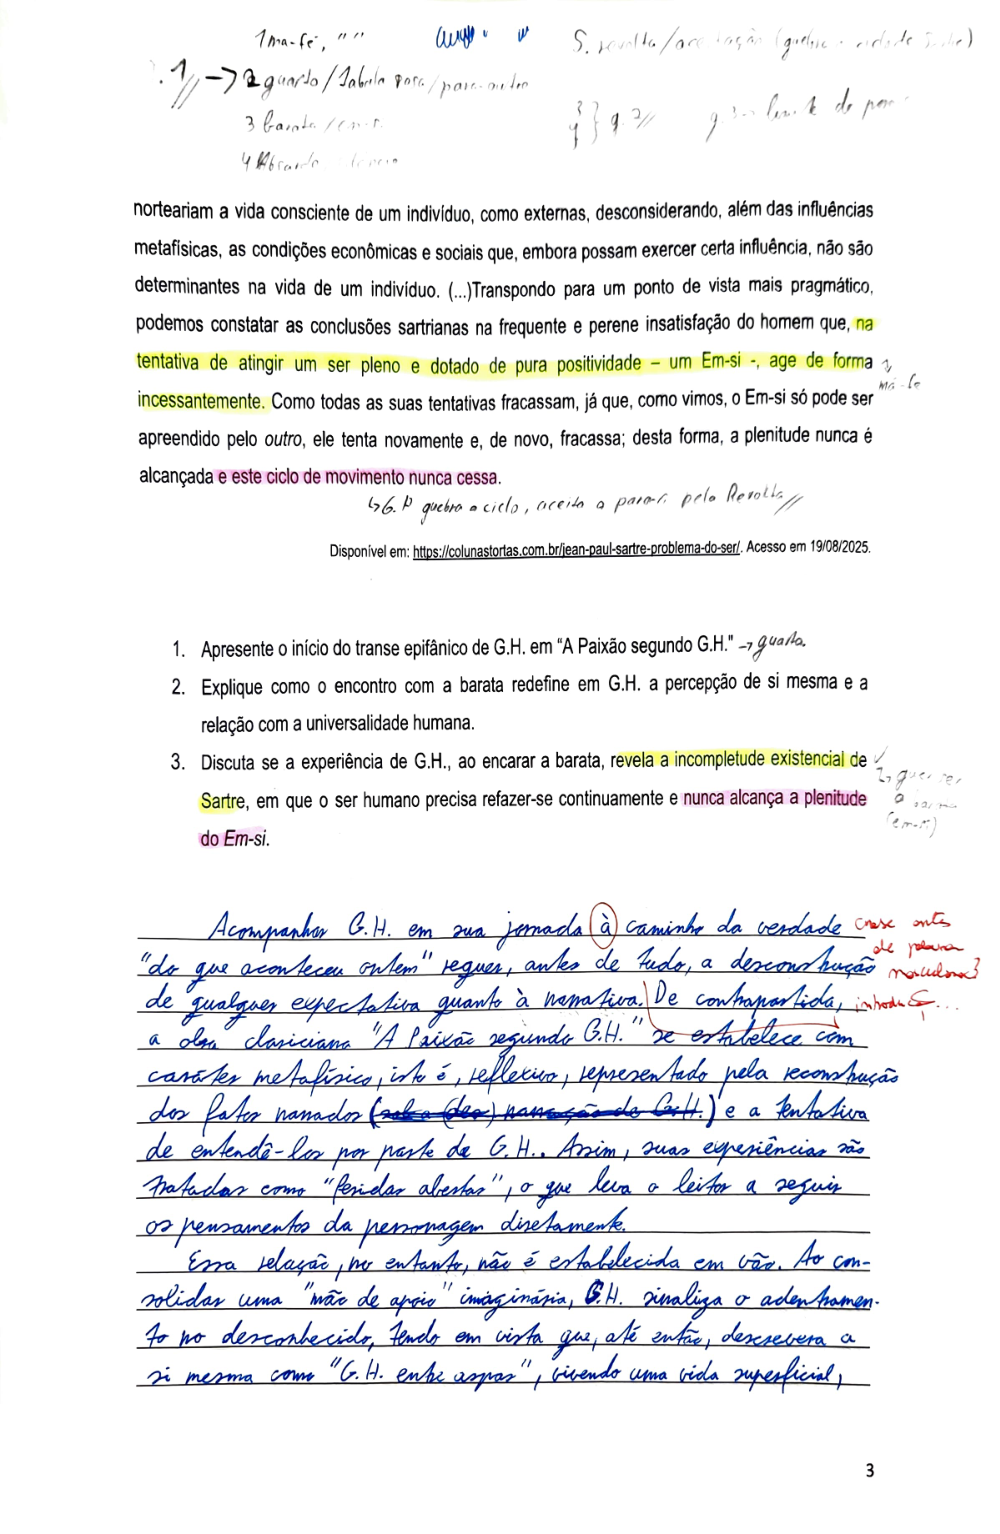 1 ma-fé, " "
S. revolta/
1 → 2 quarto / Tabula rasa / para-outro
3 barata /
} q. 2
4 Absurdo
norteariam a vida consciente de um indivíduo, como externas, desconsiderando, além das influências
metafísicas, as condições econômicas e sociais que, embora possam exercer certa influência, não são
determinantes na vida de um indivíduo. (...)Transpondo para um ponto de vista mais pragmático,
podemos constatar as conclusões sartrianas na frequente e perene insatisfação do homem que, na
tentativa de atingir um ser pleno e dotado de pura positividade – um Em-si -, age de forma
má-fé
incessantemente. Como todas as suas tentativas fracassam, já que, como vimos, o Em-si só pode ser
apreendido pelo outro, ele tenta novamente e, de novo, fracassa; desta forma, a plenitude nunca é
alcançada e este ciclo de movimento nunca cessa.
↳ G.H quebra o ciclo, aceita o para-si pela Revolta //
Disponível em: https://colunastortas.com.br/jean-paul-sartre-problema-do-ser/. Acesso em 19/08/2025.
1. Apresente o início do transe epifânico de G.H. em “A Paixão segundo G.H.” → quarto.
2. Explique como o encontro com a barata redefine em G.H. a percepção de si mesma e a
relação com a universalidade humana.
3. Discuta se a experiência de G.H., ao encarar a barata, revela a incompletude existencial de
↳ quer ser
Sartre, em que o ser humano precisa refazer-se continuamente e nunca alcança a plenitude
a barata
(em-si)
do Em-si.
Acompanhar G.H. em sua jornada à caminho da verdade
crase antes
de palavra
masculina?
"do que aconteceu ontem" requer, antes de tudo, a desconstrução
de qualquer expectativa quanto à narrativa. De contrapartida,
a obra clariciana "A Paixão segundo G.H." se estabelece com
caráter metafísico, isto é, reflexivo, representado pela reconstrução
dos fatos narrados (sob a (des) narração de G.H.) e a tentativa
de entendê-los por parte de G.H.. Assim, suas experiências são
tratadas como "feridas abertas", o que leva o leitor a seguir
os pensamentos da personagem diretamente.
Essa relação, no entanto, não é estabelecida em vão. Ao con-
solidar uma "mão de apoio" imaginária, G.H. sinaliza o adentramen-
to no desconhecido, tendo em vista que, até então, descrevera a
si mesma como "G.H. entre aspas", vivendo uma vida superficial,
3